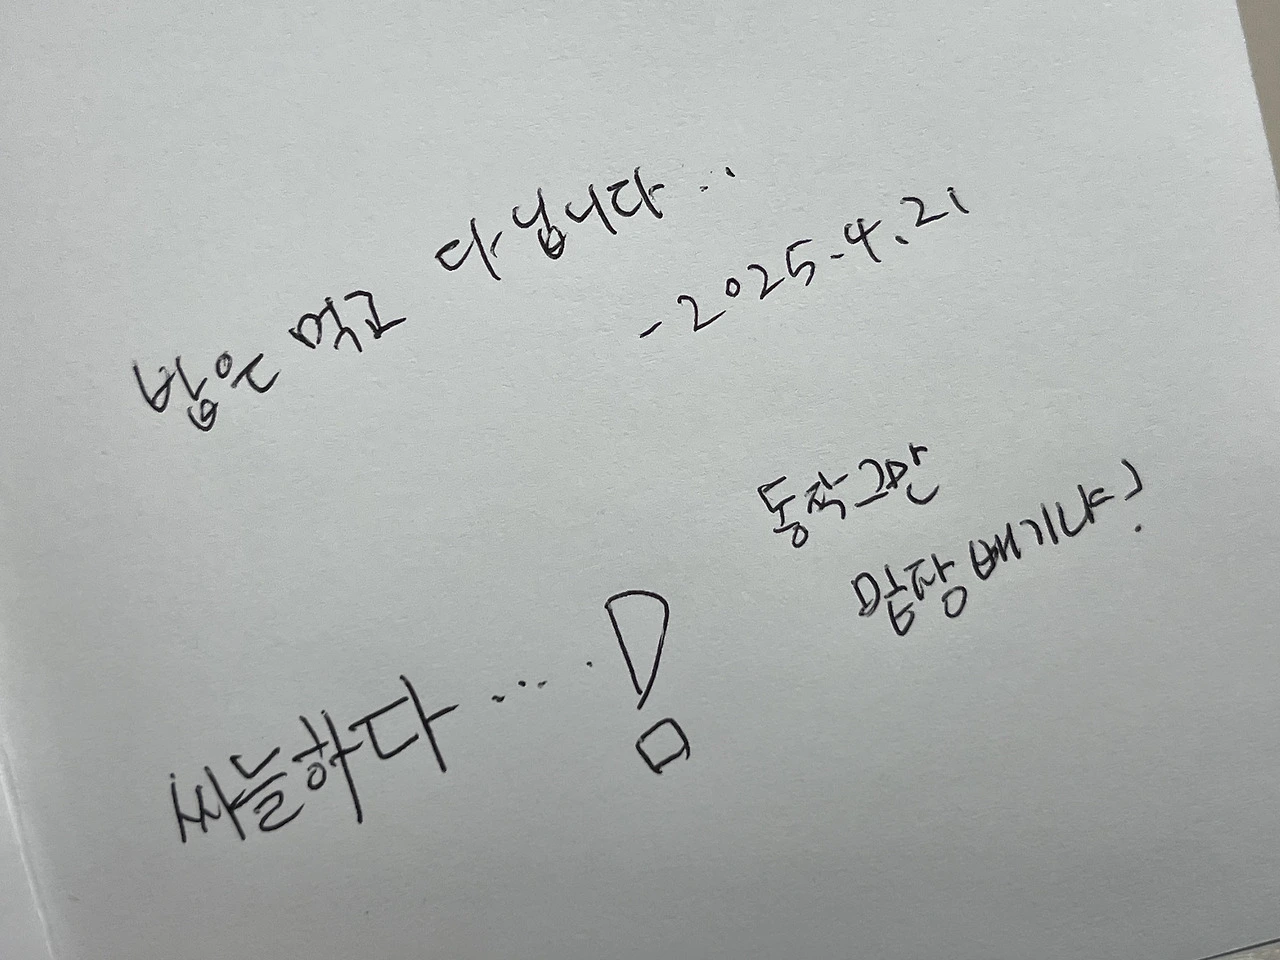 밥은 먹고 다닙니다...
- 2025.4.21
동작그만
밑장빼기냐?
싸늘하다....!